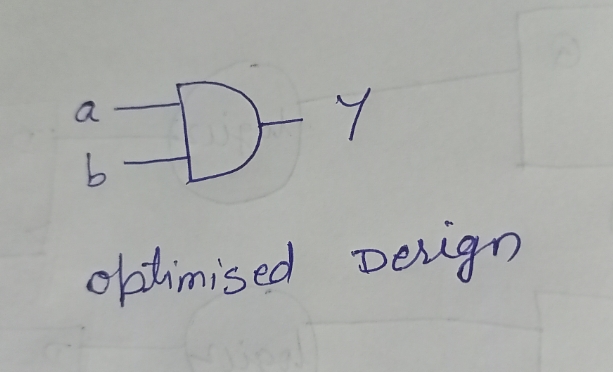 a
b
Y
optimised Design